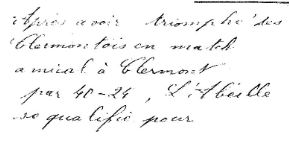 Après avoir triomphé des
Clermontois en match
amical à Clermont
par 40-24, L'Abeille
se qualifie pour